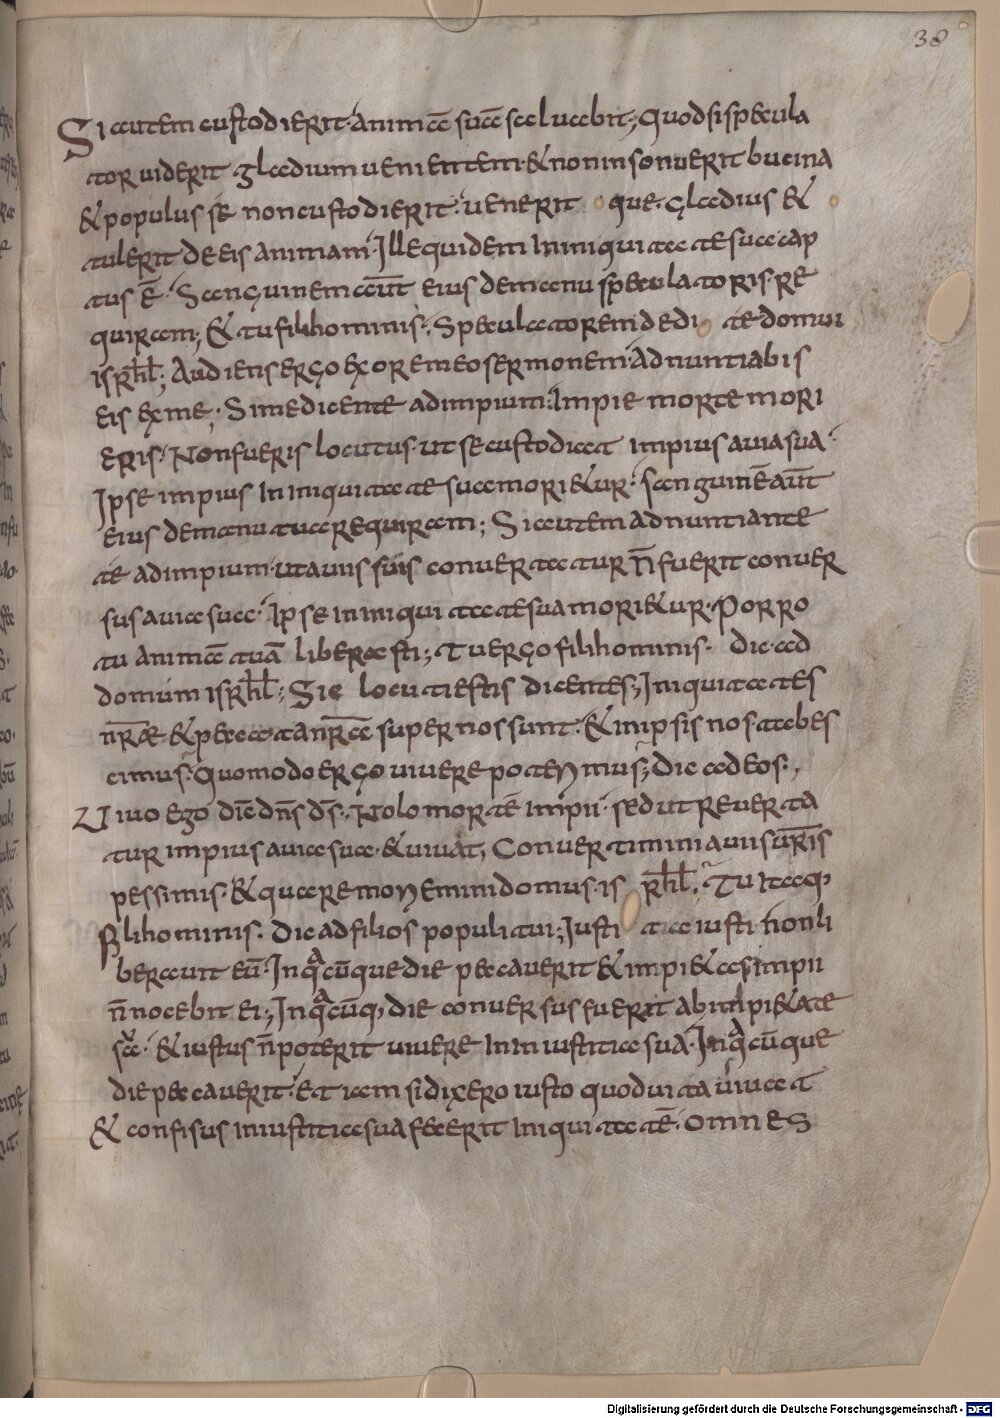 38
Si autem custodierit. animā suā saluabit; Quodsi specula
tor uiderit gladium uenientem. & non insonuerit bucina
& populus se non custodierit. uenerit que gladius &
tulerit de eis animam. Ille quidem in iniquitate sua cap
tus ē. Sanguinem aūt eius de manu speculatoris re
quiram; & tu fili hominis. Speculatorem dedi te domui
isrł; Audiens ergo ex ore meo sermonem. adnuntiabis
eis ex me; Si me dicente ad impium. Impie morte mori
eris. Non fueris locutus. ut se custodiat impius a uia sua.
Ipse impius in iniquitate sua mori&ur. sanguinē aūt
eius de manu tua requiram; Si autem adnuntiante
te ad impium. ut a uiis suis conuertatur n̄ fuerit conuer
sus a uia sua. Ipse in iniquitate sua mori&ur. Porro
tu animā tuā liberasti; Tu ergo fili hominis. dic ad
domum isrł; Sic locuti estis dicentes; Iniquitates
nr̄ae & peccata nr̄a super nos sunt. & in ipsis nos tabes
cimus. Quomodo ergo uiuere poterimus; dic ad eos.,
Uiuo ego dic̄ dn̄s ds̄. Nolo mortē impii. sed ut reuerta
tur impius a uia sua. & uiuat; Conuertimini a uiis ur̄is
pessimis. & quare moriemini domus is rł; Tu itaq;
fili hominis. dic ad filios populi tui; Iusti tia iusti non li
berauit eū. In quacūque die peccauerit & impi&as impii
n̄ nocebit ei; In quacūq; die conuersus fuerit ab impi&ate
sua. & iustus n̄ poterit uiuere in iniustitia sua. In quacūque
die peccauerit. Etiam si dixero iusto quod uita uiuat
& confisus in iustitia sua fecerit iniquitatē. omnes
Digitalisierung gefördert durch die Deutsche Forschungsgemeinschaft - DFG